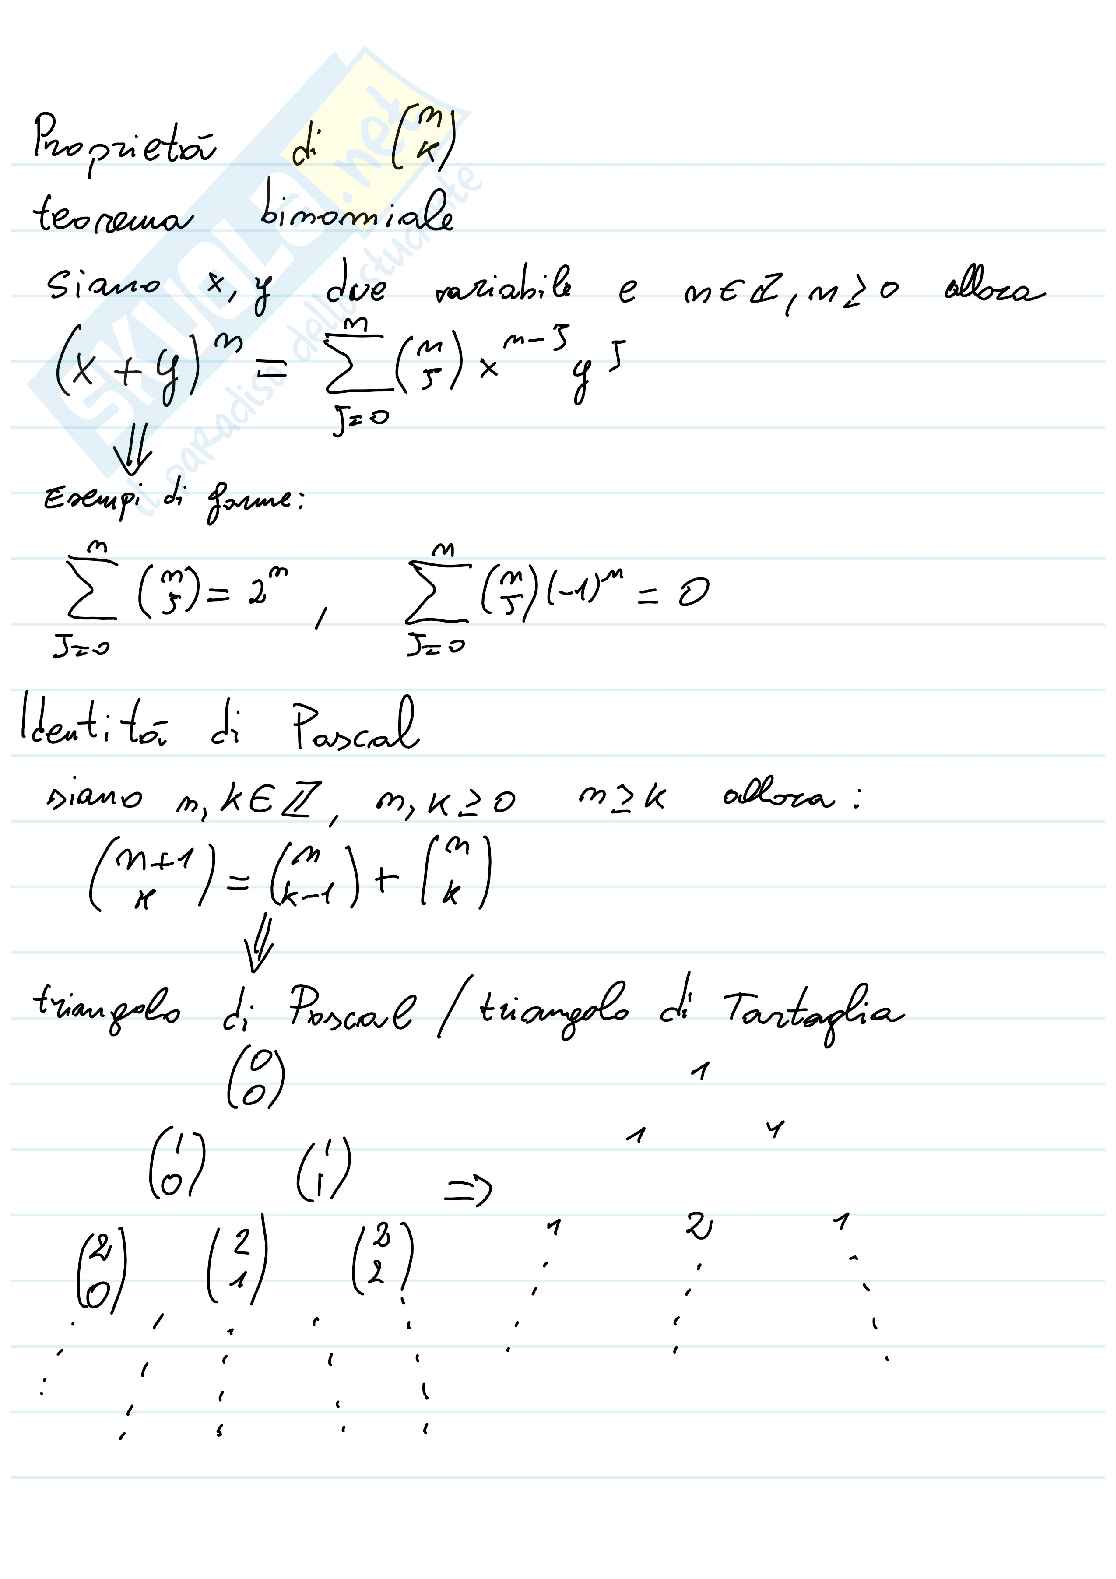 Proprietà di (n k)
teorema binomiale
Siano x, y due variabile e n∈ℤ, n ≥ 0 allora
(x + y)^n = ∑_{J=0}^{n} (n J) x^{n-J} y^J
⇓
Esempi di forme:
∑_{J=0}^{n} (n J) = 2^n , ∑_{J=0}^{n} (n J) (-1)^n = 0
Identità di Pascal
siano n, k∈ℤ, n, k ≥ 0 n ≥ k allora :
(n+1 k) = (n k-1) + (n k)
⇓
triangolo di Pascal / triangolo di Tartaglia
(0 0) 1
(1 0) (1 1) ⇒ 1 1
(2 0) (2 1) (2 2) 1 2 1
SKUOLA.net
il paradiso dello studente